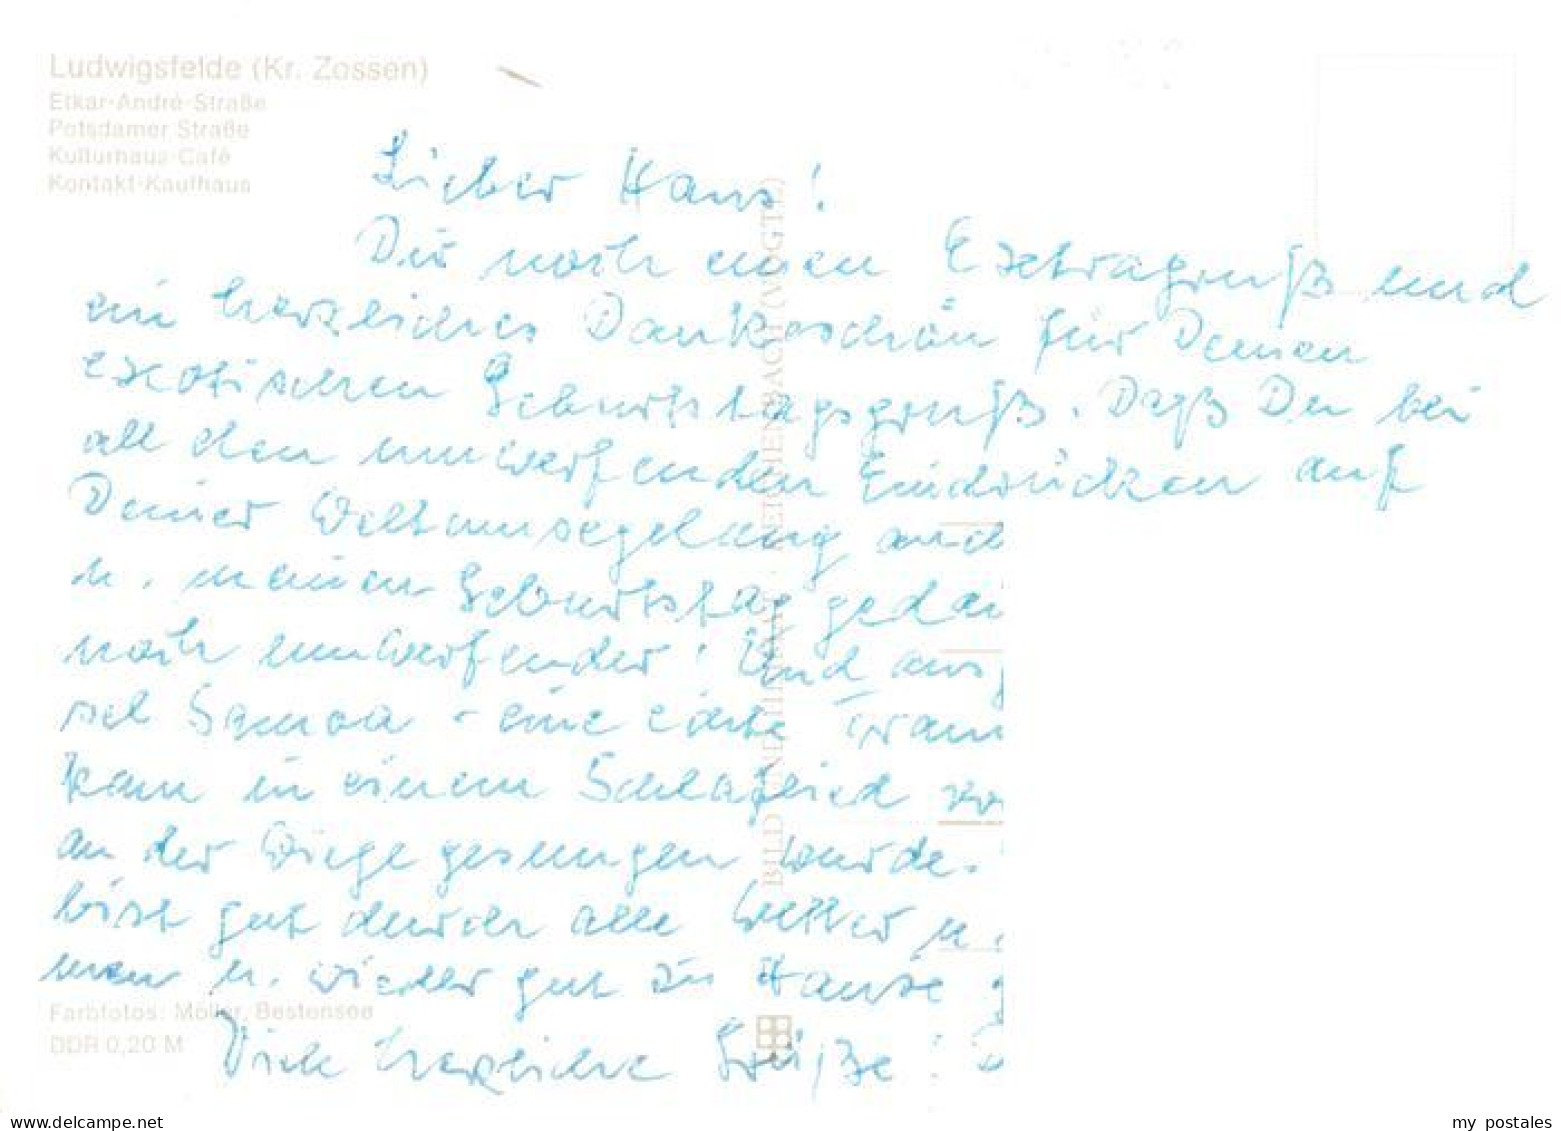 Ludwigsfelde (Kr. Zossen)
Etkar-André-Straße
Potsdamer Straße
Kulturhaus-Café
Kontakt-Kaufhaus
Lieber Hans!
Dir noch einen Extragruß und
ein herzliches Dankeschön für Deinen
exotischen Geburtstagsgruß. Daß Du bei
all den umwerfenden Eindrücken auf
Deiner Weltumsegelung auch
u. meinen Geburtstag gedac
noch umwerfender! Und aus
sel Samoa - eine echte Traum
kam in einem Schlaflied vo
an der Wiege gesungen wurde.
bist gut durch alle Wetter u.
men u. wieder gut zu Hause
Viele herzliche Grüße!
BILD UND HEIMAT REICHENBACH (VOGTL)
Farbfotos: Möller, Bestensee
DDR 0,20 M
www.delcampe.net
my_postales